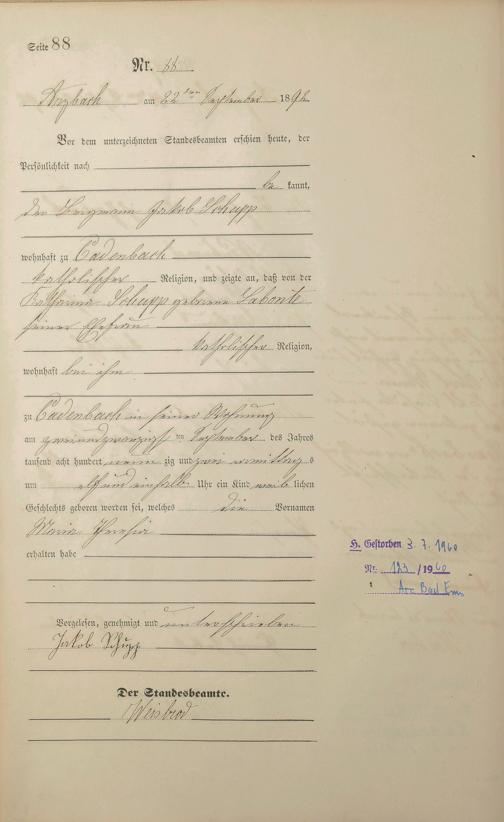 Seite 88
Nr. 88
Arzbach am 22ten September 1892
Vor dem unterzeichneten Standesbeamten erschien heute, der
Persönlichkeit nach
be kannt,
der Bergmann Jakob Schupp
wohnhaft zu Cadenbach
katholischer Religion, und zeigte an, daß von der
Katharina Schupp geborene Labonte
seiner Ehefrau
katholischer Religion,
wohnhaft bei ihm
zu Cadenbach in seiner Wohnung
am zweiundzwanzigsten September des Jahres
tausend acht hundert neun zig und zwei vormittags
um elf und einhalb Uhr ein Kind weib lichen
Geschlechts geboren worden sei, welches die Vornamen
Maria Theresia
erhalten habe
H. Gestorben 3.7.1960
Nr. 123/1960
Bad Ems
Vorgelesen, genehmigt und unterschrieben
Jakob Schupp
Der Standesbeamte.
Weisbrod